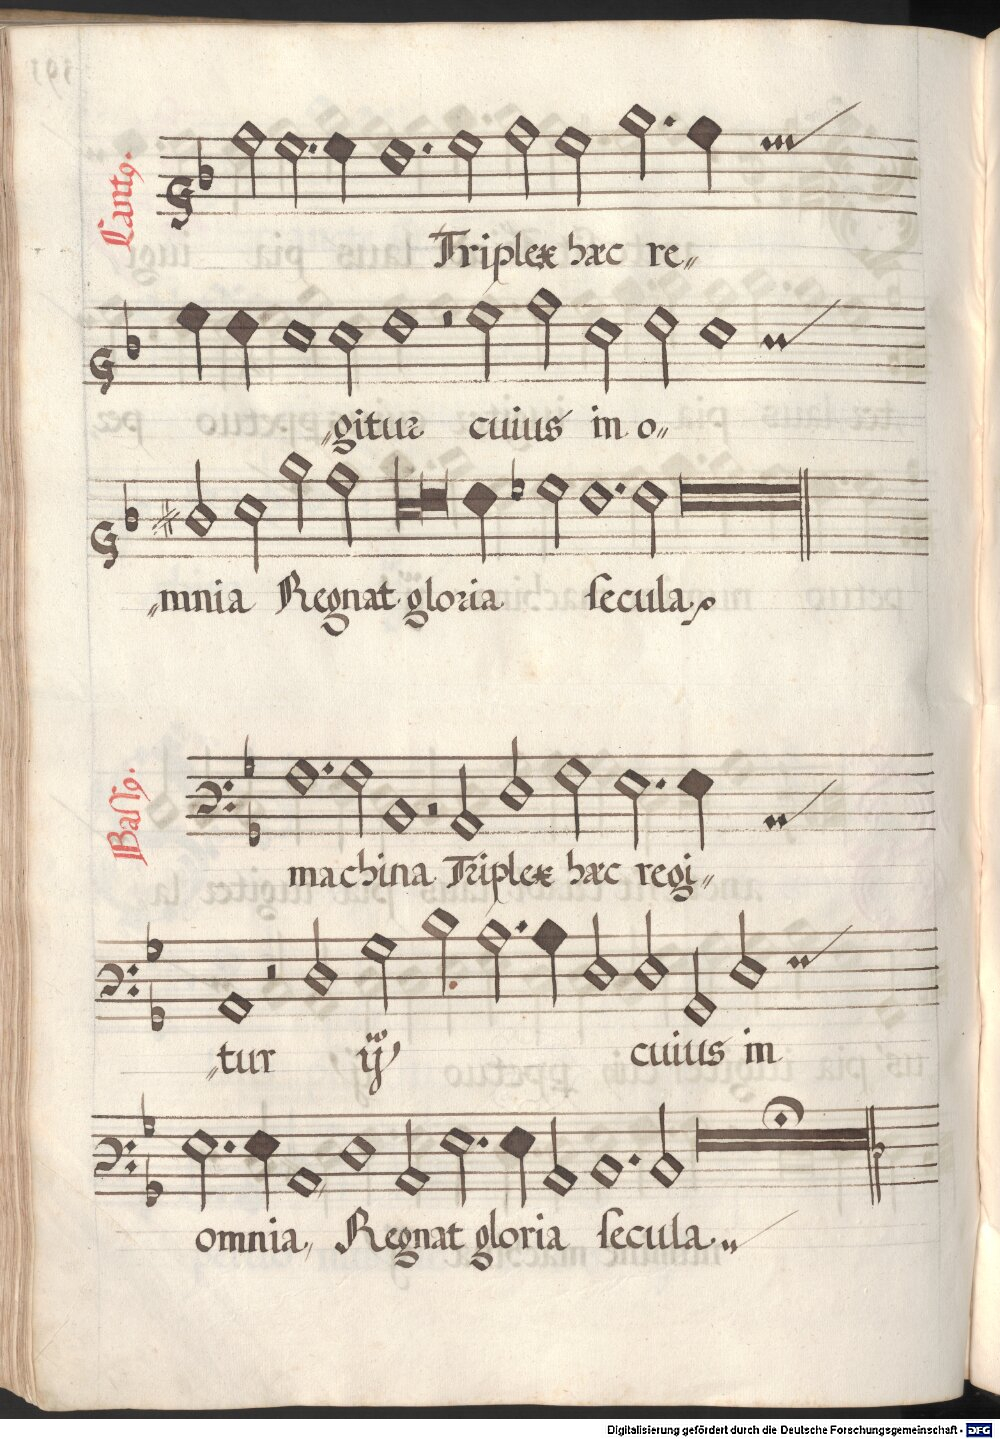 Cantq.
Triplex hæc re„
„gitur cuius in o„
„mnia Regnat gloria secula.
Bassq.
machina Triplex hæc regi„
„tur ij cuius in
omnia„ Regnat gloria secula.„
Digitalisierung gefördert durch die Deutsche Forschungsgemeinschaft - DFG